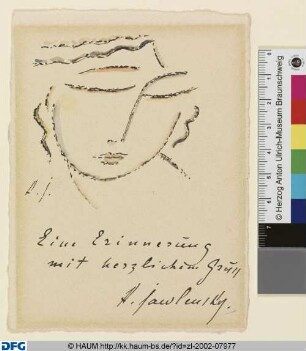 A. J.
Eine Erinnerung
mit herzlichem Gruß
A. Jawlensky.
© Herzog Anton Ulrich-Museum Braunschweig
DFG
© HAUM http://kk.haum-bs.de/?id=zl-2002-07977